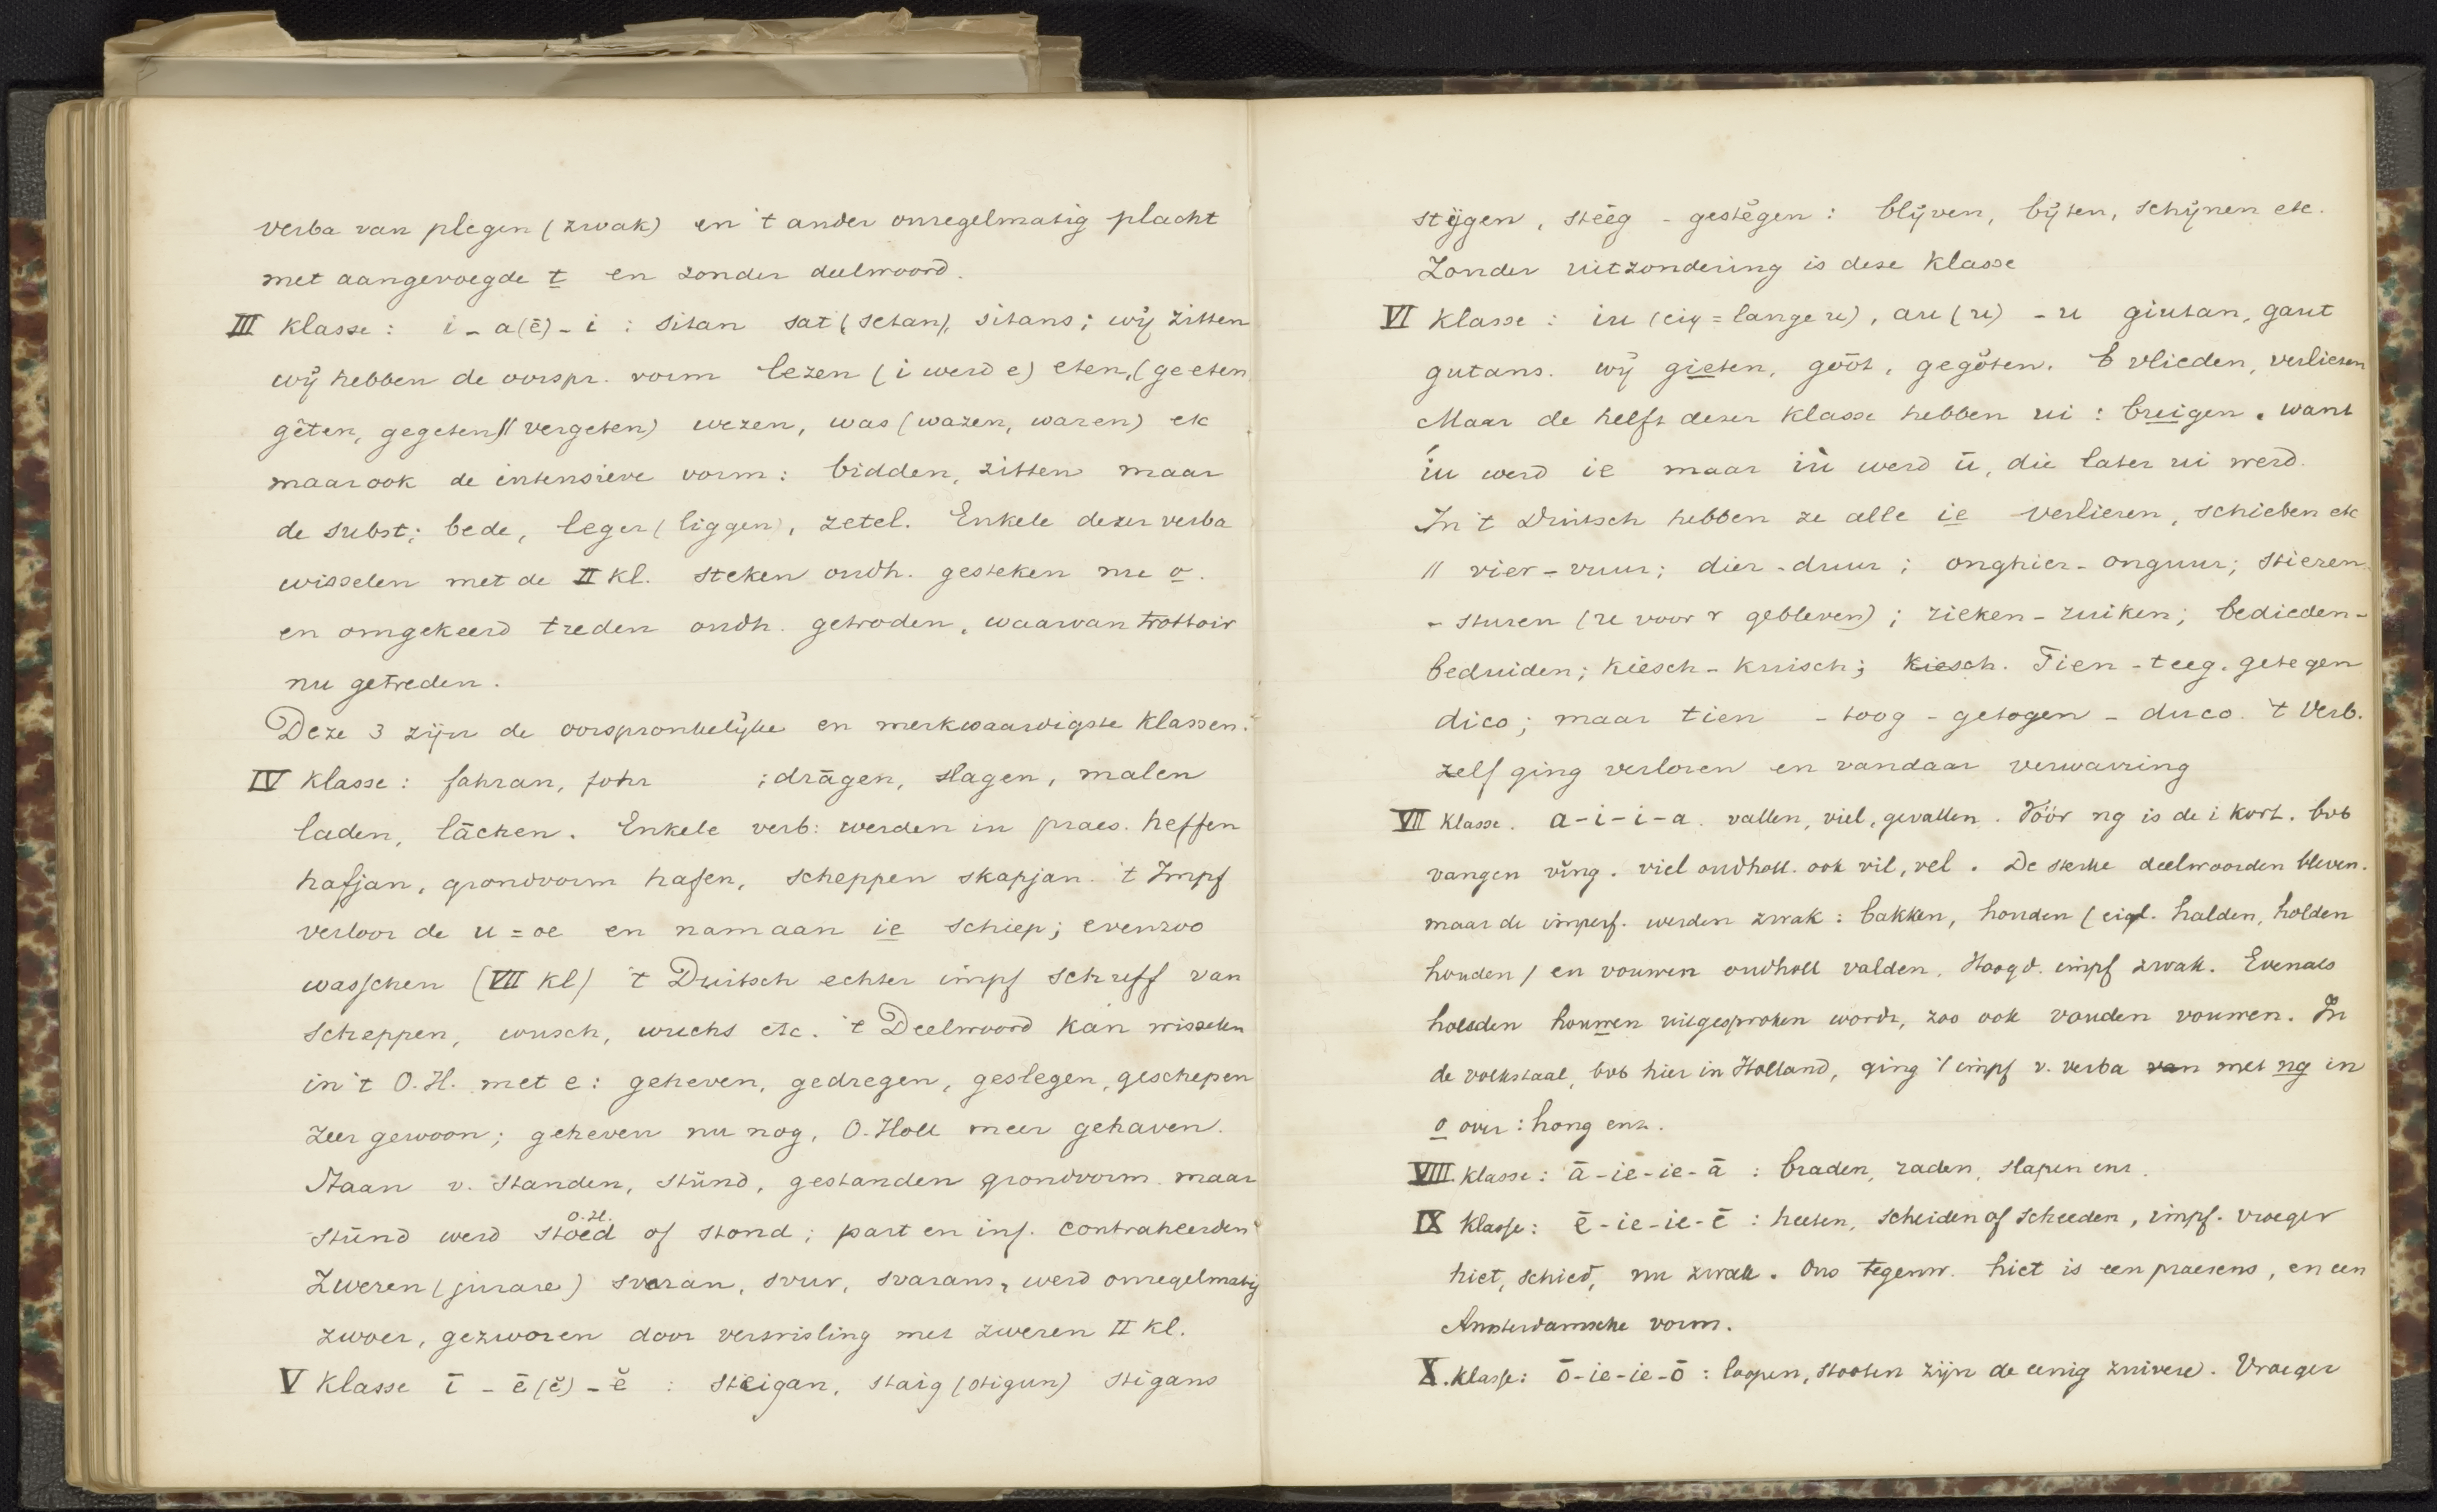 verba van plegen (zwak) en 't ander onregelmatig placht
met aangevoegde t en zonder deelwoord.
III Klasse: i - a(ē) - i : sitan sat (setan), sitans; wij zitten
wij hebben de oorspr. vorm lezen (i werd e) eten, (geeten
gēten, gegeten // vergeten) wezen, was (wazen, waren) etc
maar ook de intensieve vorm: bidden, zitten maar
de subst: bede, leger (liggen), zetel. Enkele dezer verba
wisselen met de II Kl. steken oudh. gesteken nu o.
en omgekeerd treden oudh. getroden, waarvan trottoir
nu getreden.
Deze 3 zijn de oorspronkelijke en merkwaardigste Klassen.
IV Klasse: fahran, fohr : drāgen, slagen, malen
laden, lāchen. Enkele verb: werden in praes. heffen
hafjan, grondvorm hafen, scheppen skapjan. 't Impf
verloor de u = oe en nam aan ie schiep; evenzoo
wasschen (VII Kl) 't Duitsch echter impf schuff van
scheppen, wusch, wuchs etc. 't Deelwoord kan wisselen
in 't O.H. met e: geheven, gedregen, geslegen, geschepen
zeer gewoon; geheven nu nog, O. Holl meer gehaven.
Staan v. standen, stūnd, gestanden grondvorm. maar
stūnd werd stoed of stond; part en inf. contraheerden
O.H.
Zweren (jurare) svaran, svur, svarans, werd onregelmatig
zwoer, gezworen door verwisling met zweren II Kl.
V Klasse ī - ē (ĕ) - ĕ : steigan, staig (stigun) stigans
stijgen, steēg - gestĕgen: blijven, bijten, schijnen etc.
Zonder uitzondering is deze Klasse
VI Klasse: iu (eig = lange u), au (u) - u giutan, gaut
gutans. wij gieten, gōōt, gegŏten. vlieden, verliezen
Maar de helft dezer Klasse hebben ui: buigen. want
íu werd ie maar iù werd ū, die later ui werd.
In 't Duitsch hebben ze alle ie verlieren, schieben etc
// vier - vuur; dier - duur; onghier - onguur; stieren
- sturen (u voor r gebleven); zieken - zuiken; bedieden -
beduiden; kiesch - kuisch; kiesch. Tien - teeg. getegen
dico; maar tien - toog - getogen - duco. 't Verb.
zelf ging verloren en vandaar verwarring
VII Klasse. a - i - i - a. vallen, viel, gevallen. Vóór ng is de i kort. bvb
vangen vĭng. viel oudholl. ook vil, vel. De sterke deelwoorden bleven.
maar de imperf. werden zwak: bakken, houden (eigl. halden, holden
houden) en vouwen oudholl valden. Hoogd. impf zwak. Evenals
houden houwen uitgesproken wordt, zoo ook vouden vouwen. In
de volkstaal, bvb hier in Holland, ging 't impf v. verba van met ng in
o over: hong enz.
VIII. Klasse: ā - ie - ie - ā : braden, raden, slapen enz.
IX Klasse: ē - ie - ie - ē : heeten, scheiden of scheeden, impf. vroeger
hiet, schied, nu zwak. Ons tegenw. hiet is een praesens, en een
Amsterdamsche vorm.
X. Klasse: ō - ie - ie - ō : loopen, stooten zijn de eenig zuivere. Vroeger